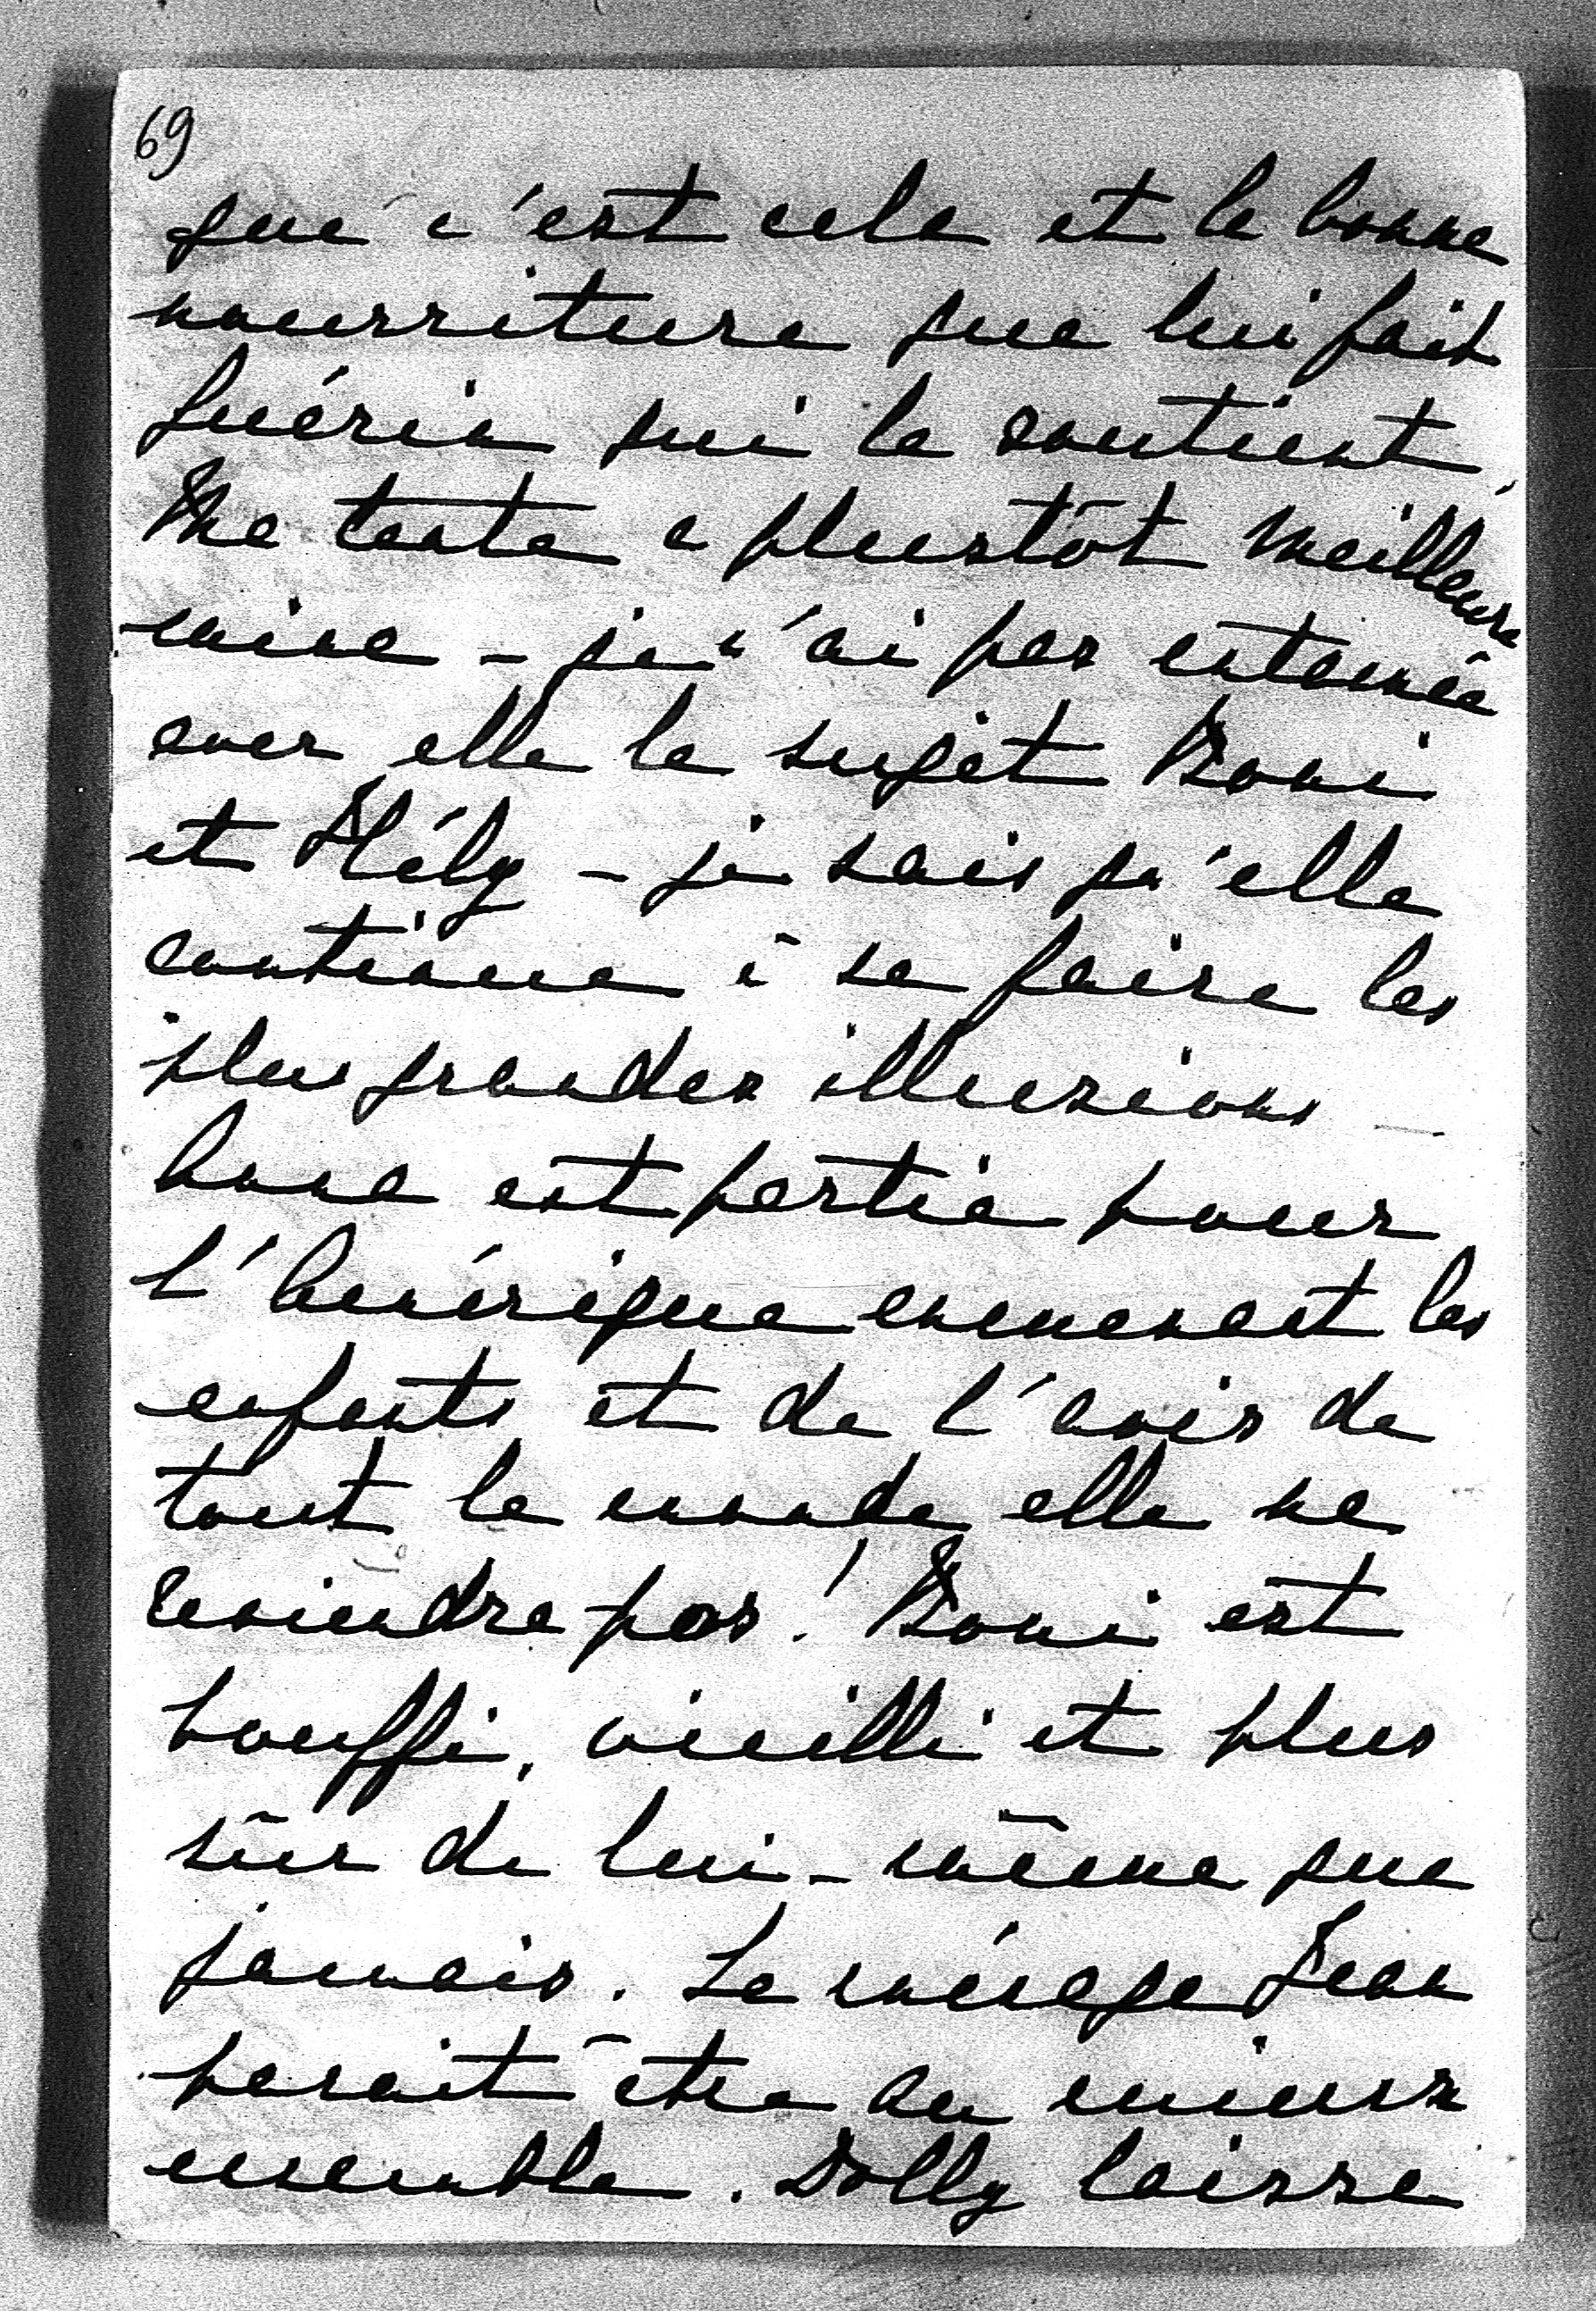 69
que c'est cela et la bonne
nourriture que lui fait
Guérin qui la soutient.
Ma tante a plustôt meilleure
mine - je n'ai pas entamée
avec elle le sujet Boni
et Hély - je sais qu'elle
continue à se faire les
plus grandes illusions -
Anna est partie pour
l'Amérique emmenant les
enfants et de l'avis de
tout le monde elle ne
reviendra pas! Boni est
bouffi, vieilli et plus
sûr de lui-même que
jamais. Le ménage Jean
parait être au mieux
ensemble. Dolly laisse